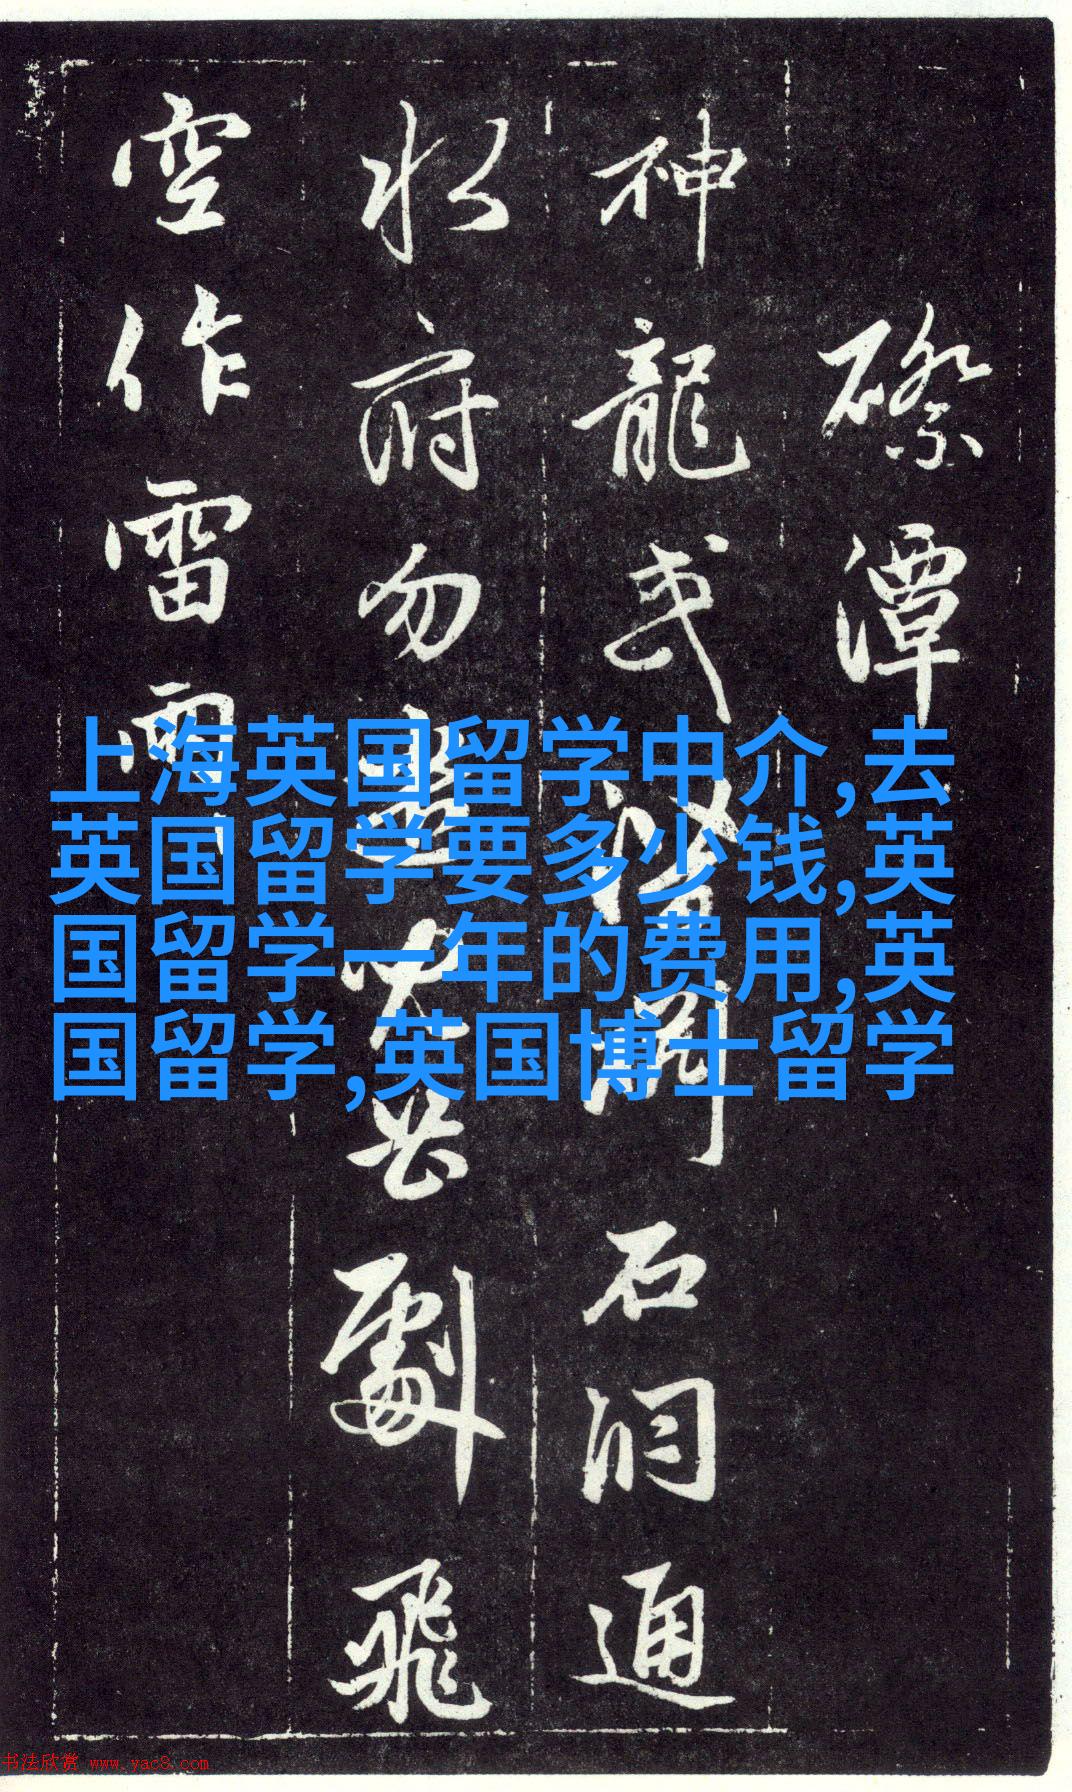 潭
神龍或潛石洞通
水府勿劇飛
空作雷雨
上海英国留学中介,去
英国留学要多少钱,英
国留学一年的费用,英
国留学,英国博士留学
书法欣赏 www.yac8.com